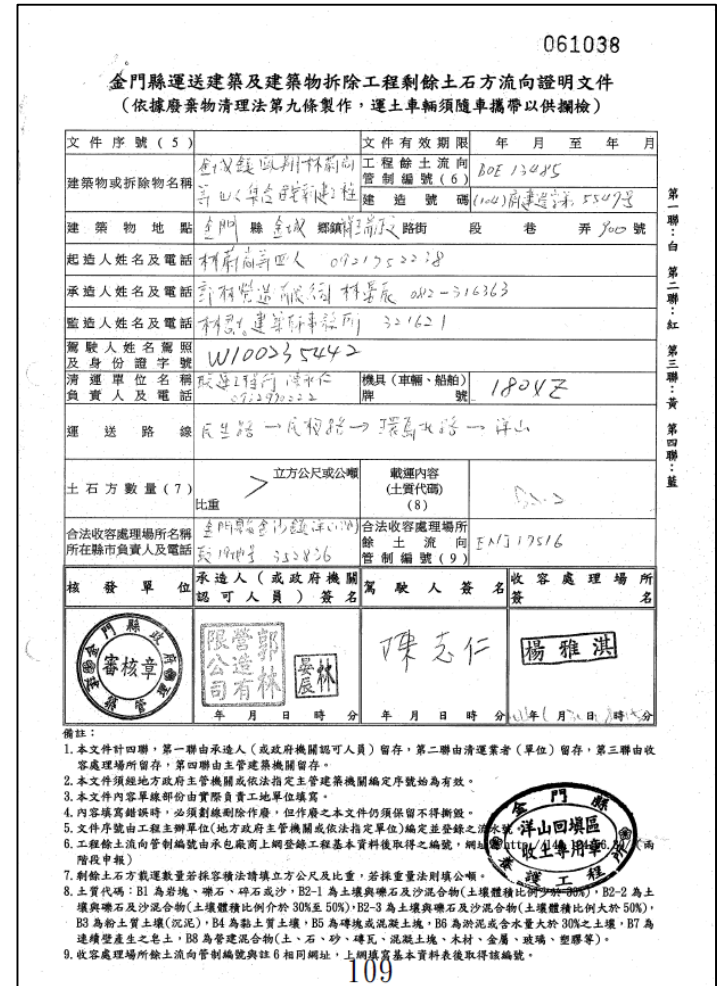 061038
金門縣運送建築及建築物拆除工程剩餘土石方流向證明文件
(依據廢棄物清理法第九條製作,運土車輛須隨車攜帶以供攔檢)
文件序號(5) 文件有效期限 年 月 至 年 月
建築物或拆除物名稱 金城鎮 林蔚尚等四人集合 新建工程
工程餘土流向管制編號(6) BOE 13485
建造號碼 (104)府建造字第 5549号
建築物地點 金門 縣 金城 鄉鎮 路街 段 巷 弄 900 號
起造人姓名及電話 林蔚尚等四人 0921752238
承造人姓名及電話 郭林營造有限公司 林晏辰 082-316363
監造人姓名及電話 建築師事務所 321621
駕駛人姓名駕照及身份證字號 W100235442
清運單位名稱負責人及電話 0932990222
機具(車輛、船舶)牌號 1804Z
運送路線 民生路→民權路→環島北路→洋山
土石方數量(7) 立方公尺或公噸
比重
載運內容(土質代碼)(8)
合法收容處理場所名稱所在縣市負責人及電話 金門縣金沙鎮洋山 352836
合法收容處理場所餘土流向管制編號(9) ENJ17516
核發單位 承造人(或政府機關認可人員)簽名 駕駛人簽名 收容處理場所簽名
金門縣政府
審核章
郭林營造有限公司
林晏辰
陳志仁
楊雅淇
年 月 日 時 分
年 月 日 時 分
第一聯:白 第二聯:紅 第三聯:黃 第四聯:藍
備註:
1.本文件計四聯,第一聯由承造人(或政府機關認可人員)留存,第二聯由清運業者(單位)留存,第三聯由收
容處理場所留存,第四聯由主管建築機關留存。
2.本文件須經地方政府主管機關或依法指定主管建築機關編定序號始為有效。
3.本文件內容單線部份由實際負責工地單位填寫。
4.內容填寫錯誤時,必須劃線刪除作廢,但作廢之本文件仍須保留不得撕毀。
5.文件序號由工程主辦單位(地方政府主管機關或依法指定單位)編定並登錄之流水號
6.工程餘土流向管制編號由承包廠商上網登錄工程基本資料後取得之編號,網址 http://140. (兩
階段申報)
7.剩餘土石方載運數量若採容積法請填立方公尺及比重,若採重量法則填公噸。
8.土質代碼:B1 為岩塊、礫石、碎石或沙,B2-1 為土壤與礫石及沙混合物(土壤體積比例少於 30%),B2-2 為土
壤與礫石及沙混合物(土壤體積比例介於 30%至 50%),B2-3 為土壤與礫石及沙混合物(土壤體積比例大於 50%),
B3 為粉土質土壤(沉泥),B4 為黏土質土壤,B5 為磚塊或混凝土塊,B6 為淤泥或含水量大於 30%之土壤,B7 為
連續壁產生之皂土,B8 為營建混合物(土、石、砂、磚瓦、混凝土塊、木材、金屬、玻璃、塑膠等)。
9.收容處理場所餘土流向管制編號與註 6 相同網址,上網填寫基本資料表後取得該編號。
金門縣養護工程所
洋山回填區
收土專用章
109